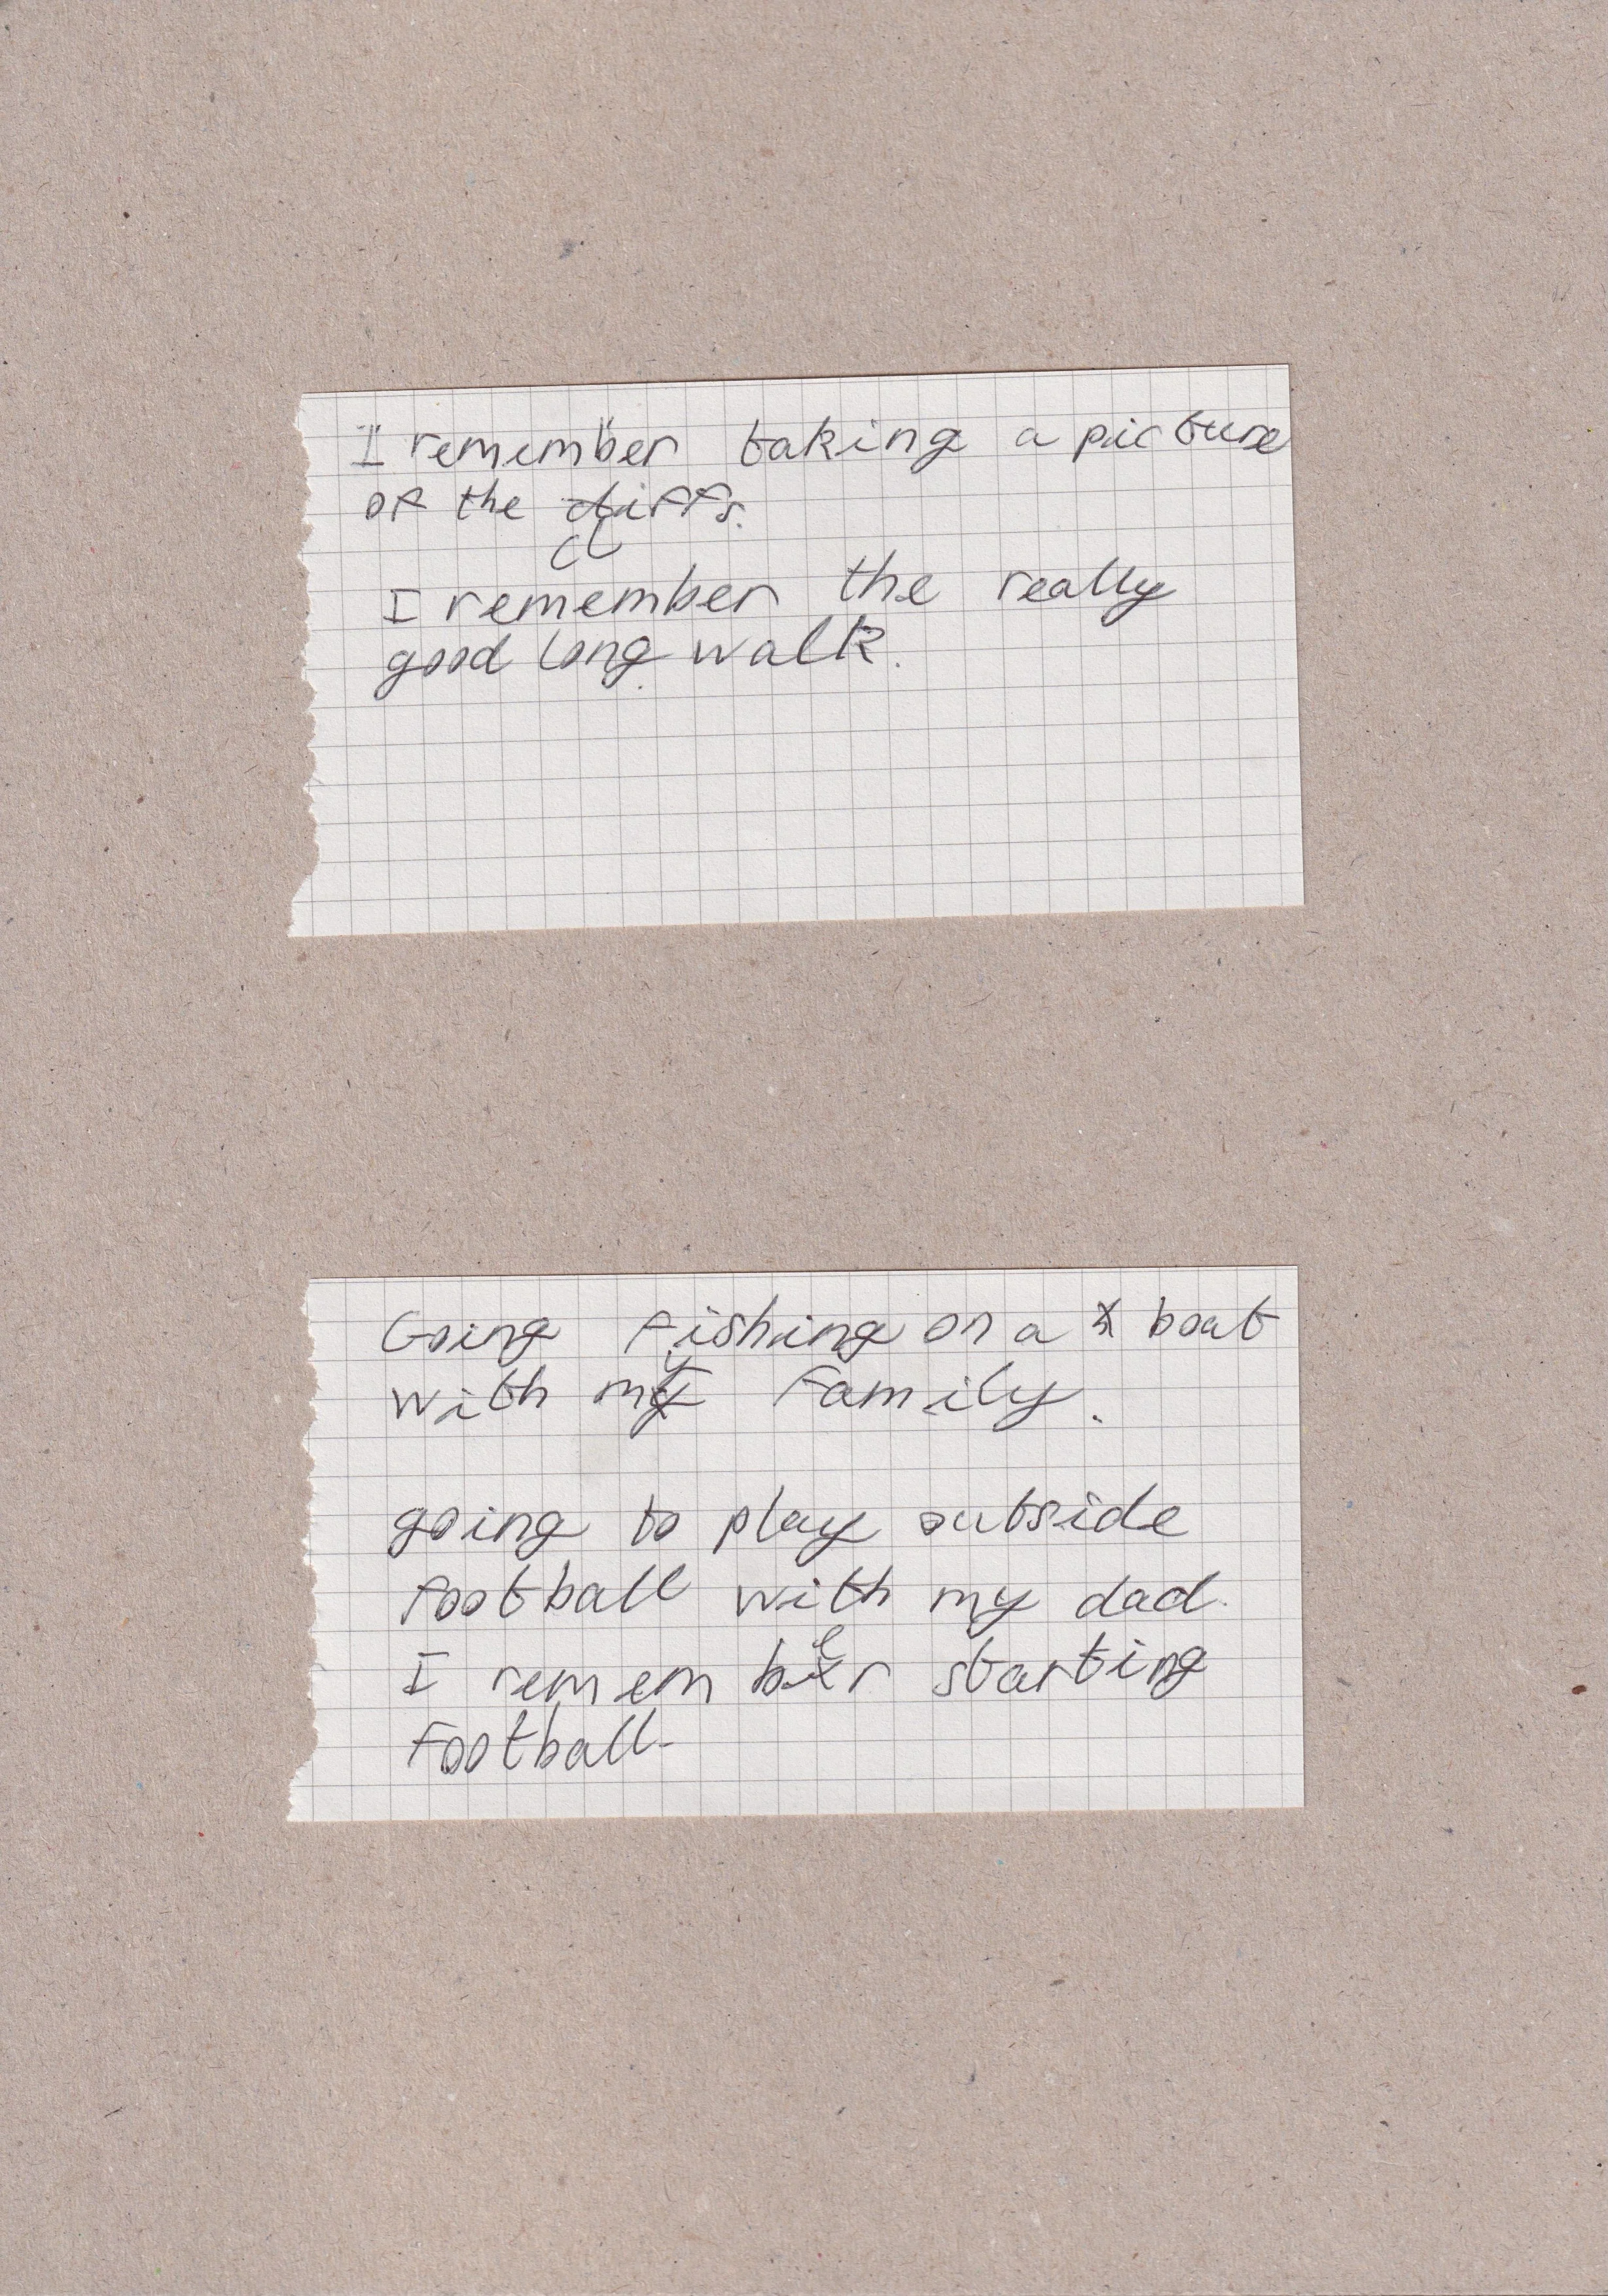 I remember taking a picture
of the cliffs.
I remember the really
good long walk.
Going fishing on a boat
with my family.
going to play outside
football with my dad.
I remember starting
football.